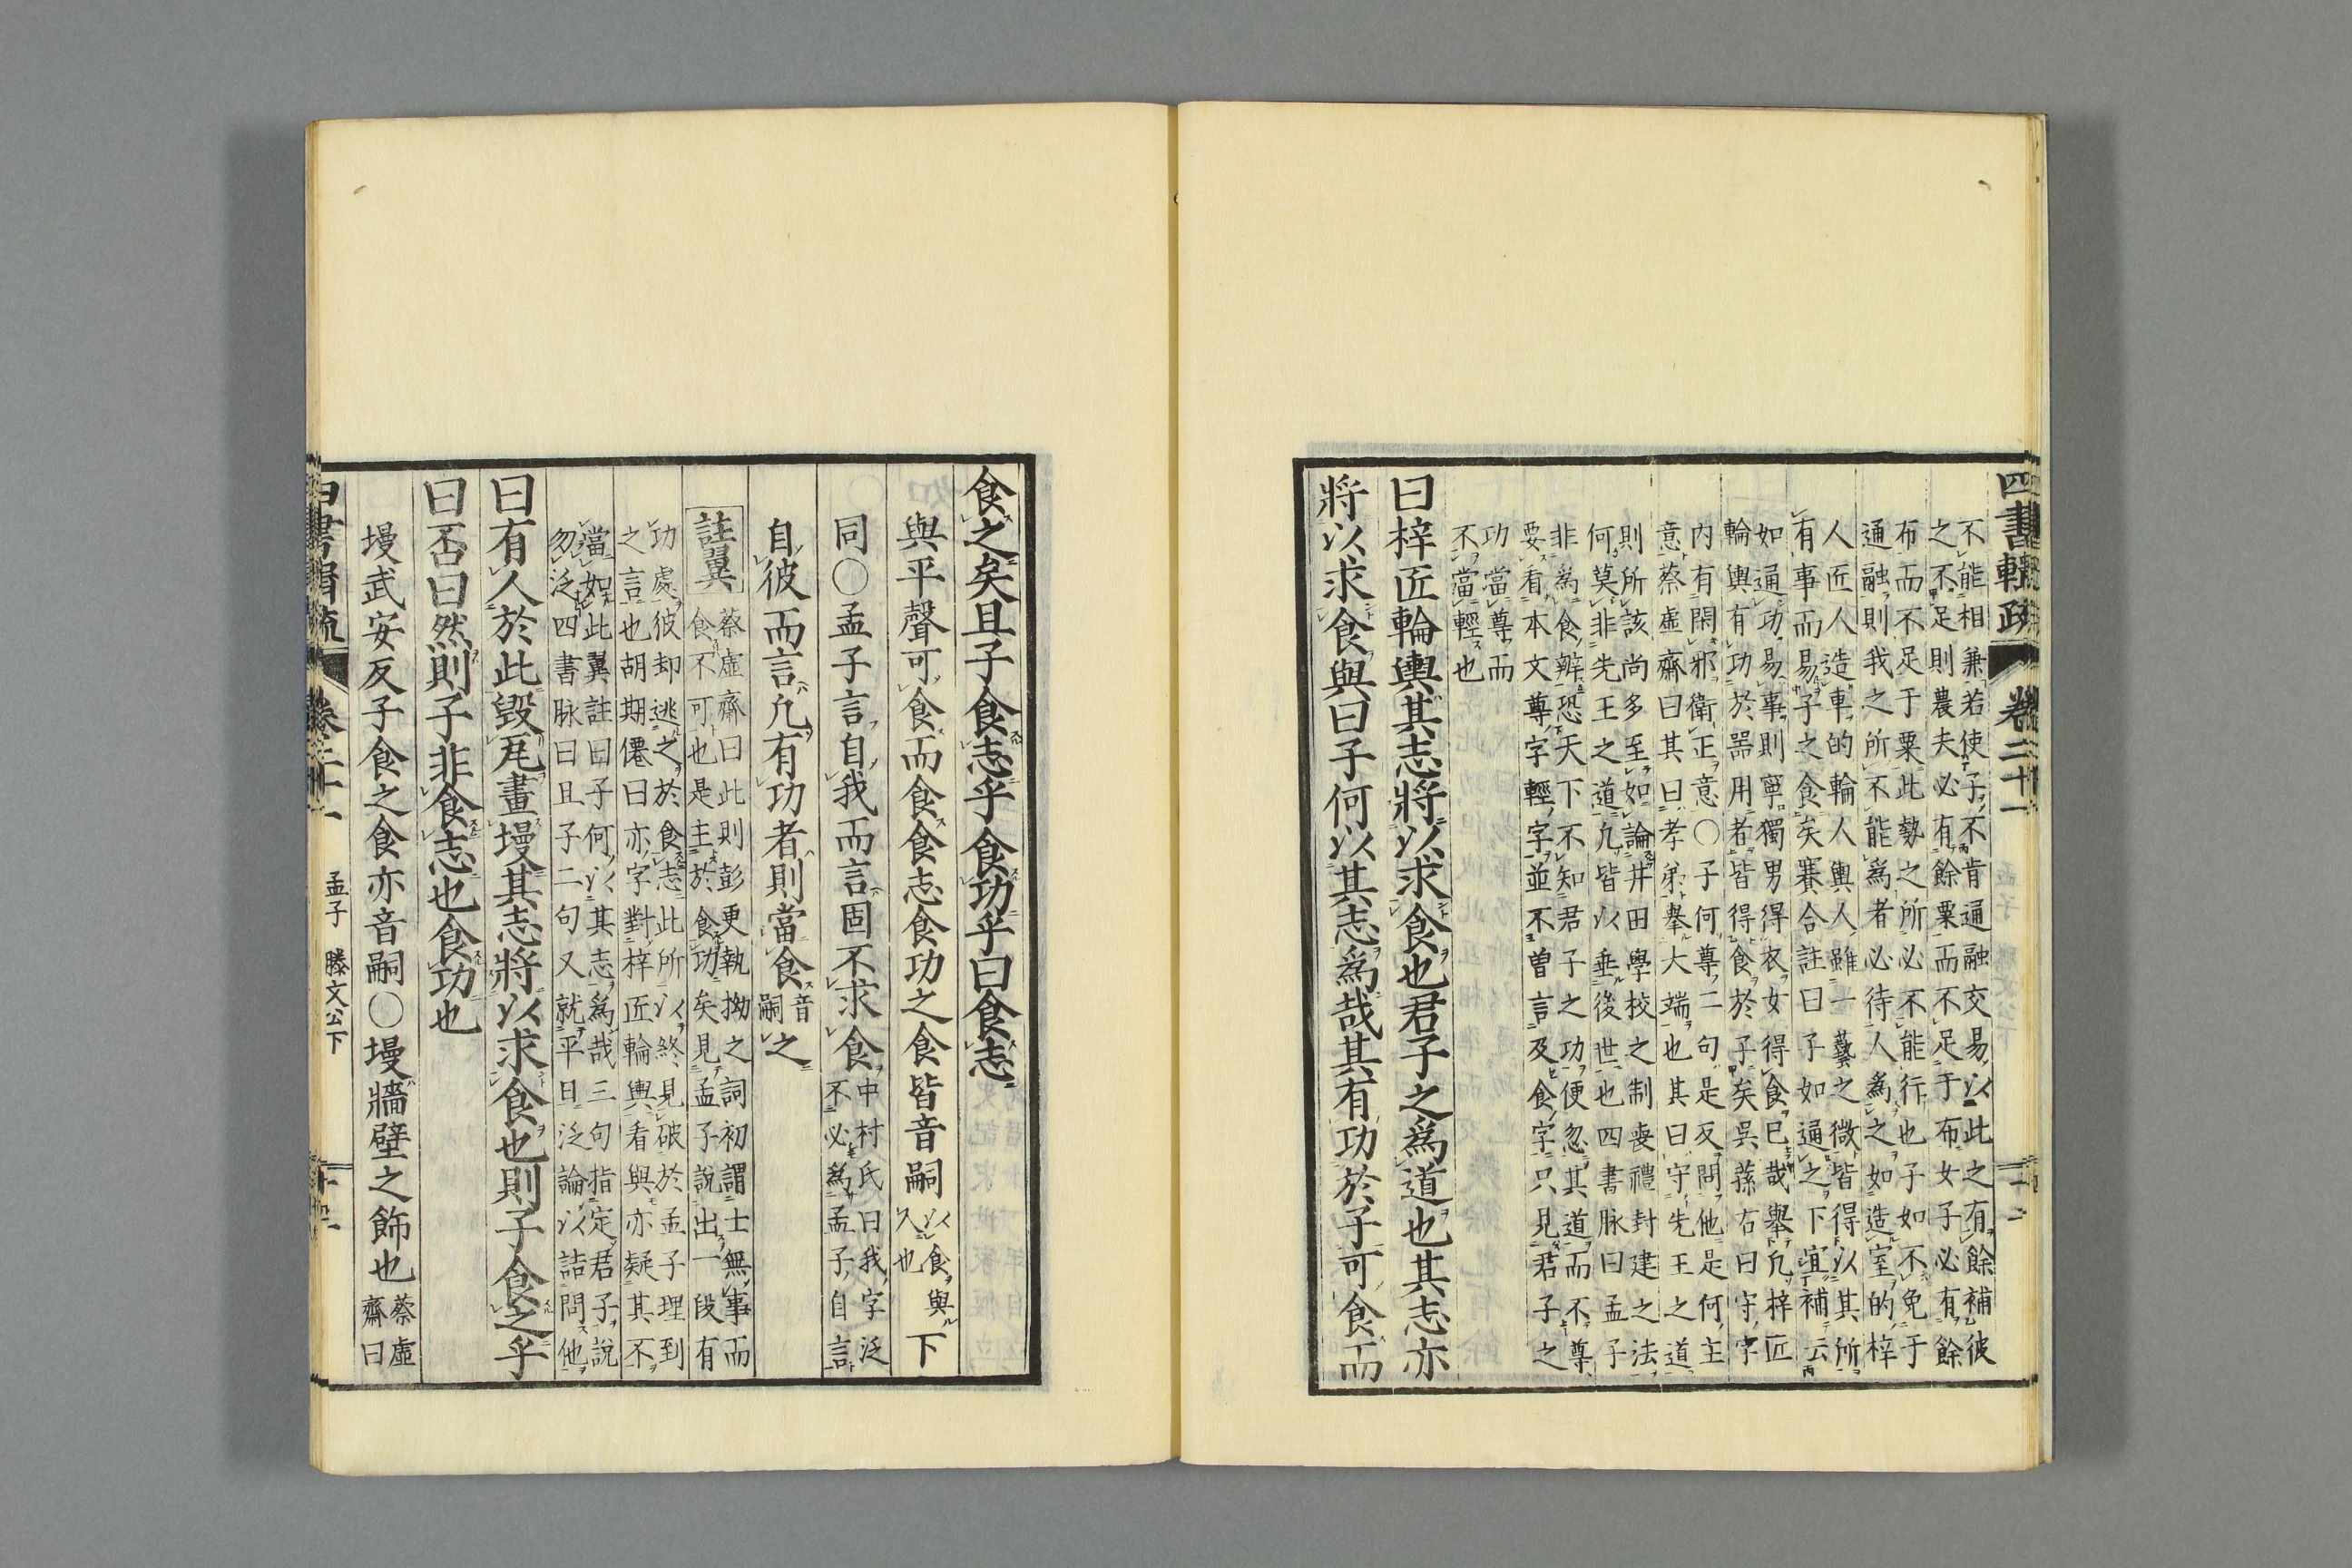 四書輯疏 卷二十一
不能相兼若使子不肯通融交易以此之有餘補彼
之不足則農夫必有餘粟而不足于布女子必有餘
布而不足于粟此勢之所必不能行也子如不免于
通融則我之所不能爲者必待人爲之如造室的梓
人匠人造車的輪人輿人雖一藝之微皆得以其所
有事而易子之食矣賽合註曰子如通之下宜補云
如通功易事則寧獨男得衣女得食已哉舉凡梓匠
輪輿有功於噐用者皆得食於子矣吳蓀右曰守字
內有閑邪衛正意〇子何尊二句是反問他是何主
意蔡虛齋曰其曰孝弟舉大端也其曰守先王之道
則所該尚多至如論井田學校之制喪禮封建之法
何莫非先王之道凢皆以垂後世也四書脉曰孟子
非爲食辨恐天下不知君子之功便忽其道而不尊
要看本文尊字輕字並不曾言及食字只見君子之
功當尊而
不當輕也
曰梓匠輪輿其志將以求食也君子之爲道也其志亦
將以求食與曰子何以其志爲哉其有功於子可食而
食之矣且子食志乎食功乎曰食志
與平聲可食而食食志食功之食皆音嗣以食與下
人也
同〇孟子言自我而言固不求食中村氏曰我字泛
不必爲孟子自言
自彼而言凢有功者則當食音嗣之
註翼 蔡虛齋曰此則彭更執拗之詞初謂士無事而
食不可也是主於食功矣見孟子說出一段有
功處彼却逃之於食志此所以終見破於孟子理到
之言也胡期僊曰亦字對梓匠輪輿看與亦疑其不
當如此翼註曰子何以其志爲哉三句指定君子說
忽泛四書脉曰且子二句又就平日泛論以詰問他
曰有人於此毀瓦畫墁其志將以求食也則子食之乎
曰否曰然則子非食志也食功也
墁武安反子食之食亦音嗣〇墁牆壁之飾也蔡虛
齋曰
卷二十一 孟子 滕文公下